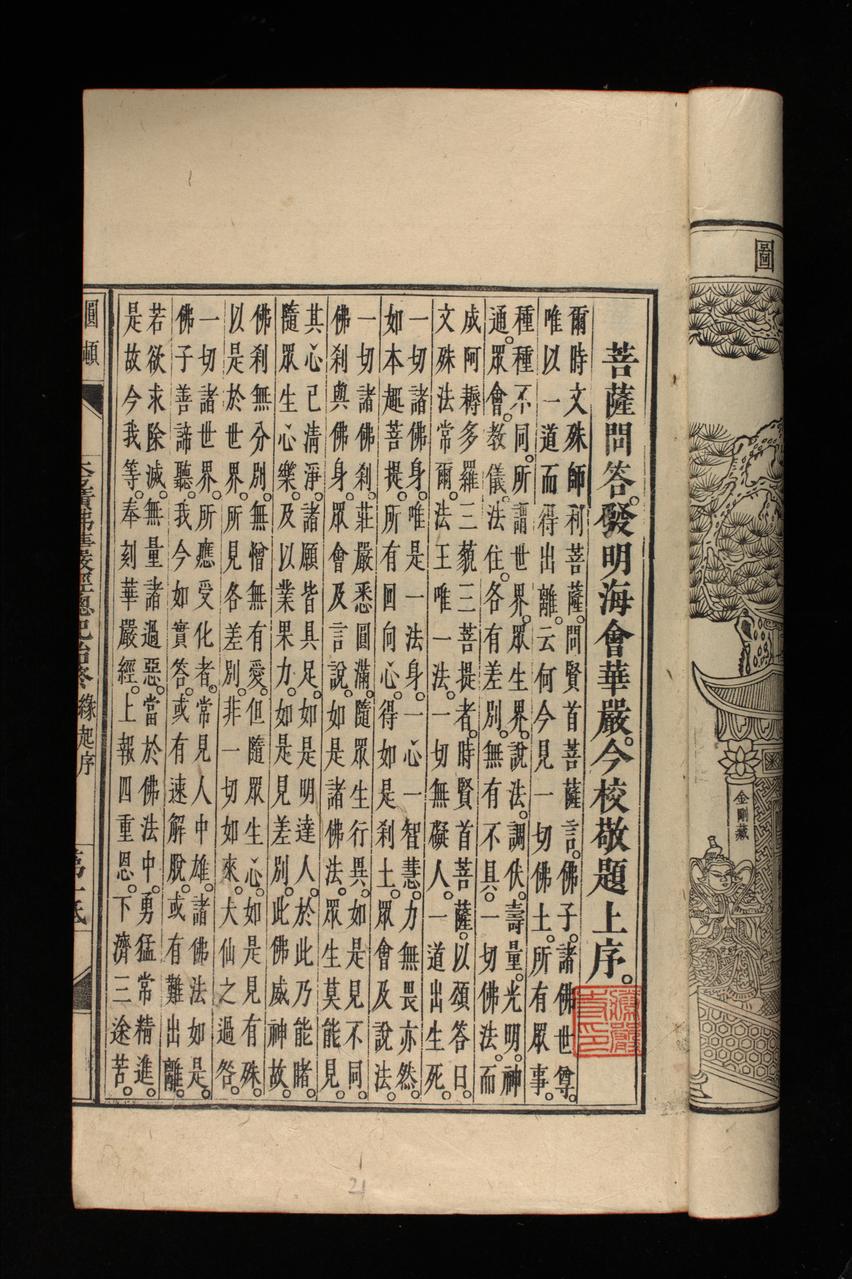 圖
金剛藏
菩薩問答。發明海會華嚴。今校敬題上序。
爾時文殊師利菩薩。問賢首菩薩言。佛子。諸佛世尊。
唯以一道而得出離。云何今見一切佛土。所有眾事。
種種不同。所謂世界。眾生界。說法。調伏。壽量。光明。神
通。眾會。教儀。法住。各有差別。無有不具。一切佛法。而
成阿耨多羅三藐三菩提者。時賢首菩薩。以頌答曰。
文殊法常爾。法王唯一法。一切無礙人。一道出生死。
一切諸佛身。唯是一法身。一心一智慧。力無畏亦然。
如本趣菩提。所有回向心。得如是刹土。眾會及說法。
一切諸佛刹。莊嚴悉圓滿。隨眾生行異。如是見不同。
佛刹與佛身。眾會及言說。如是諸佛法。眾生莫能見。
其心已清淨。諸願皆具足。如是明達人。於此乃能睹。
隨眾生心樂。及以業果力。如是見差別。此佛威神故。
佛刹無分別。無憎無有愛。但隨眾生心。如是見有殊。
以是於世界。所見各差別。非一切如來。大仙之過咎。
一切諸世界。所應受化者。常見人中雄。諸佛法如是。
佛子善諦聽。我今如實答。或有速解脫。或有難出離。
若欲求除滅。無量諸過惡。當於佛法中。勇猛常精進。
是故今我等。奉刻華嚴經。上報四重恩。下濟三途苦。
圓頓
緣起序
21